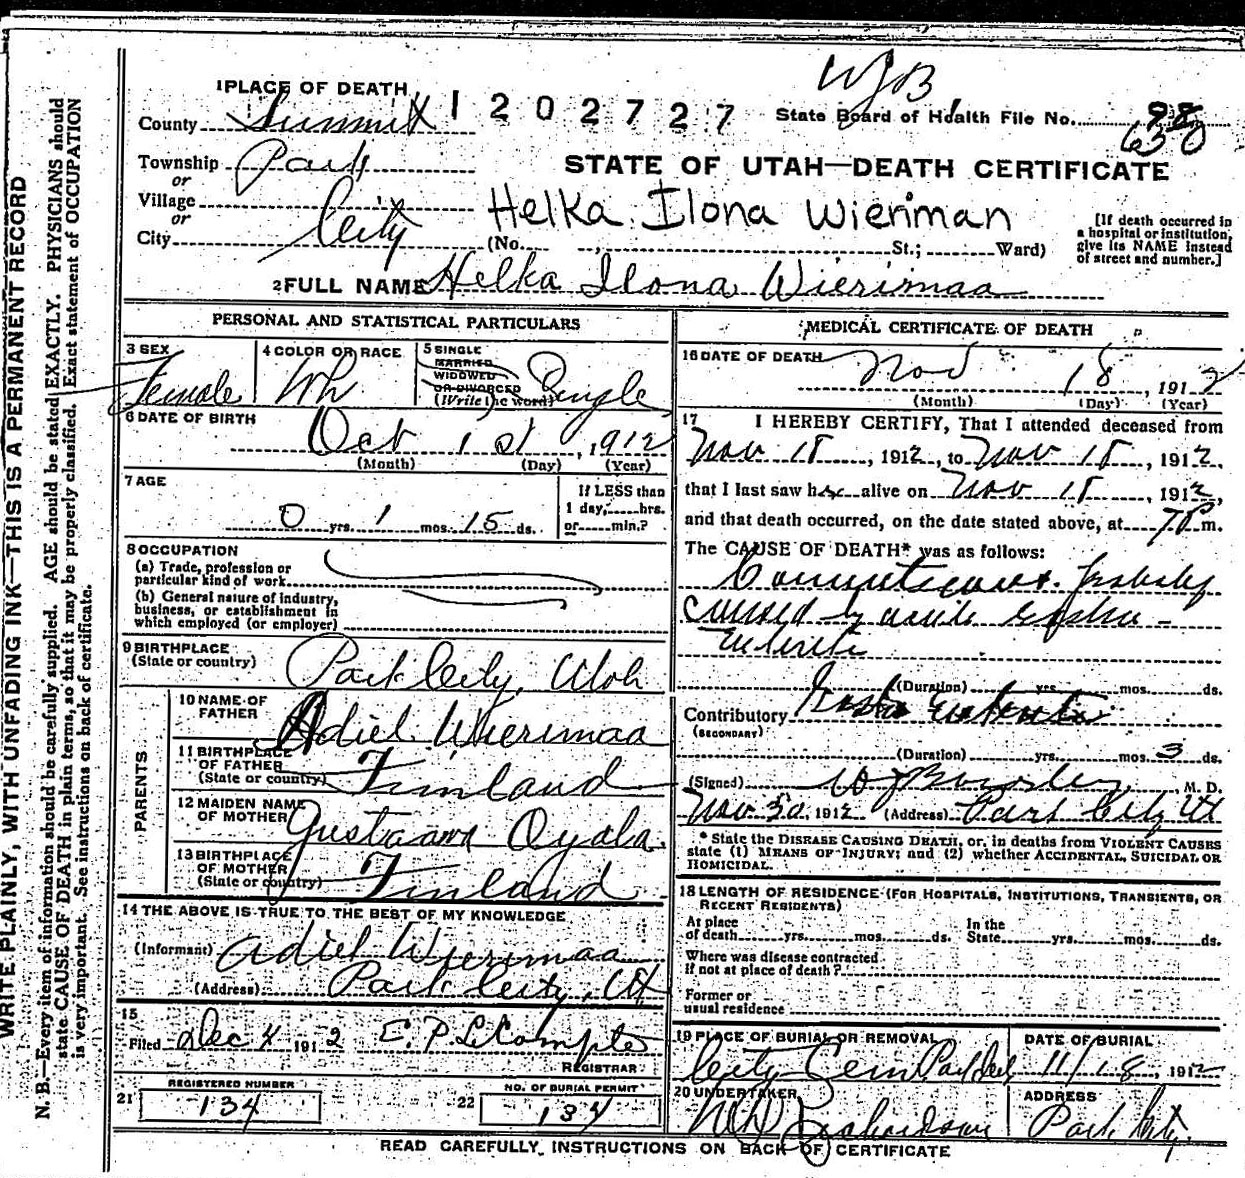 WJB
1 PLACE OF DEATH
1202727
State Board of Health File No. 98
630
County Summit
STATE OF UTAH—DEATH CERTIFICATE
Township Park
or
Village
or
City City
Helka Ilona Wieriman
(No. , St.; Ward)
[If death occurred in
a hospital or institution,
give its NAME instead
of street and number.]
2 FULL NAME Helka Ilona Wierimaa
PERSONAL AND STATISTICAL PARTICULARS
3 SEX
Female
4 COLOR OR RACE
Wh
5 SINGLE
MARRIED
WIDOWED
OR DIVORCED
(Write the word)
Single
6 DATE OF BIRTH
Oct 1st, 1912
(Month) (Day) (Year)
7 AGE
0 yrs. 1 mos. 15 ds.
If LESS than
1 day, hrs.
or min.?
8 OCCUPATION
(a) Trade, profession or
particular kind of work
(b) General nature of industry,
business, or establishment in
which employed (or employer)
9 BIRTHPLACE
(State or country)
Park City, Utah
PARENTS
10 NAME OF
FATHER
Adiel Wierimaa
11 BIRTHPLACE
OF FATHER
(State or country)
Finland
12 MAIDEN NAME
OF MOTHER
Gustaava Oyala
13 BIRTHPLACE
OF MOTHER
(State or country)
Finland
14 THE ABOVE IS TRUE TO THE BEST OF MY KNOWLEDGE
(Informant) Adiel Wierimaa
(Address) Park City, Ut
15
Filed Dec 4 1912 E. P. LeCompte
REGISTRAR
21 REGISTERED NUMBER
134
22 NO. OF BURIAL PERMIT
134
MEDICAL CERTIFICATE OF DEATH
16 DATE OF DEATH
Nov 18, 1912
(Month) (Day) (Year)
17 I HEREBY CERTIFY, That I attended deceased from
Nov 18, 1912, to Nov 18, 1912,
that I last saw her alive on Nov 18, 1912,
and that death occurred, on the date stated above, at 7 P m.
The CAUSE OF DEATH* was as follows:
probably
caused by acute
(Duration) yrs. mos. ds.
Contributory Gastro Enteritis
(SECONDARY)
(Duration) yrs. mos. 3 ds.
(Signed) M. D.
Nov 30, 1912 (Address) Park City Ut
* State the DISEASE CAUSING DEATH, or, in deaths from VIOLENT CAUSES
state (1) MEANS OF INJURY; and (2) whether ACCIDENTAL, SUICIDAL OR
HOMICIDAL.
18 LENGTH OF RESIDENCE (FOR HOSPITALS, INSTITUTIONS, TRANSIENTS, OR
RECENT RESIDENTS)
At place
of death yrs. mos. ds.
In the
State yrs. mos. ds.
Where was disease contracted
if not at place of death?
Former or
usual residence
19 PLACE OF BURIAL OR REMOVAL
City Cem Park City
DATE OF BURIAL
11/18, 1912
20 UNDERTAKER
Richardson
ADDRESS
Park City.
READ CAREFULLY, INSTRUCTIONS ON BACK OF CERTIFICATE
WRITE PLAINLY, WITH UNFADING INK—THIS IS A PERMANENT RECORD
N. B.—Every item of information should be carefully supplied. AGE should be stated EXACTLY. PHYSICIANS should
state CAUSE OF DEATH in plain terms, so that it may be properly classified. Exact statement of OCCUPATION
is very important. See instructions on back of certificate.